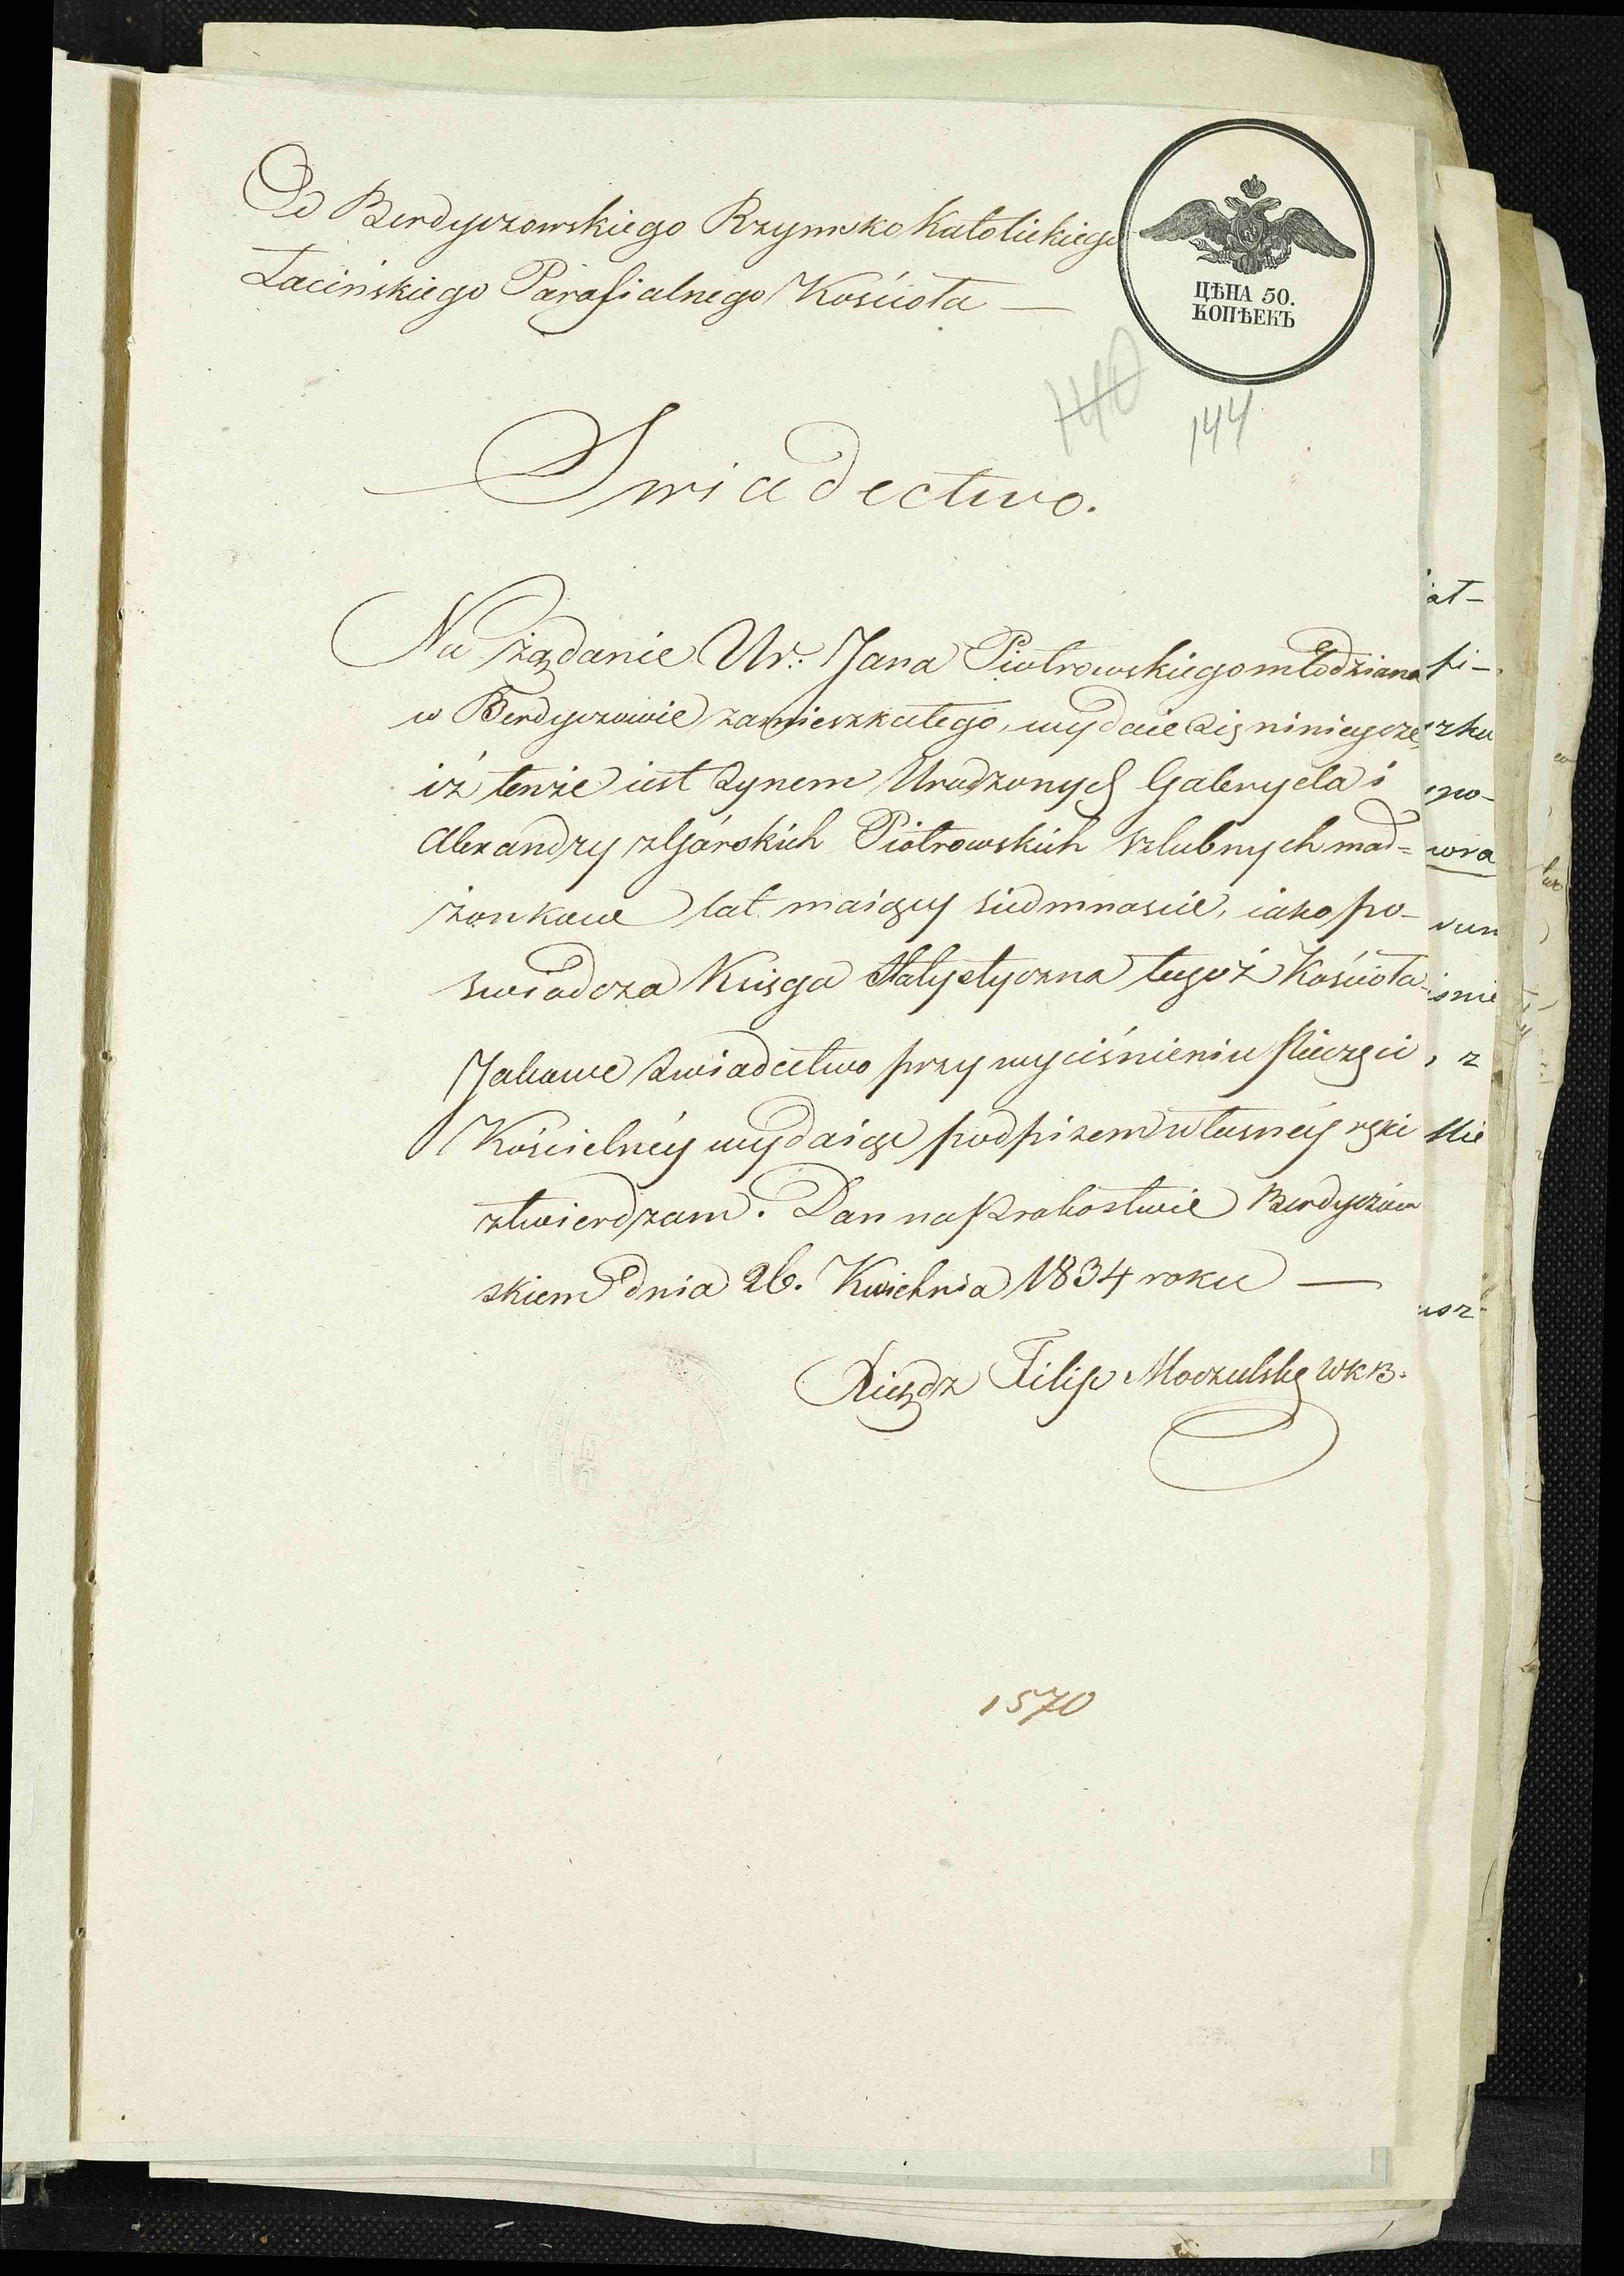 Od Berdyczowskiego Rzymsko Katolickiego
Łacińskiego Parafialnego Kościoła —
ЦѢНА 50.
КОПѢЕКЪ
140
144
Swiadectwo.
Na żądanie Ur: Jana Piotrowskiego młodziana
w Berdyczowie zamieszkałego, wydaie się ninieysze
iż tenże iest synem Urodzonych Gabryela i
Alexandry z Górskich Piotrowskich szlubnych mał=
żonkow lat maiący siedmnascie, iako po-
swiadcza Księga Statystyczna tegoż Kościoła
Jakowe swiadectwo przy wyciśnieniu Pieczęci
Kościelnéy wydaiąc podpisem własnéy ręki
ztwierdzam. Dan na Probostwie Berdyczow
skiem dnia 26. Kwietnia 1834 roku —
Xiądz Filip Moczulski WKB.
1570